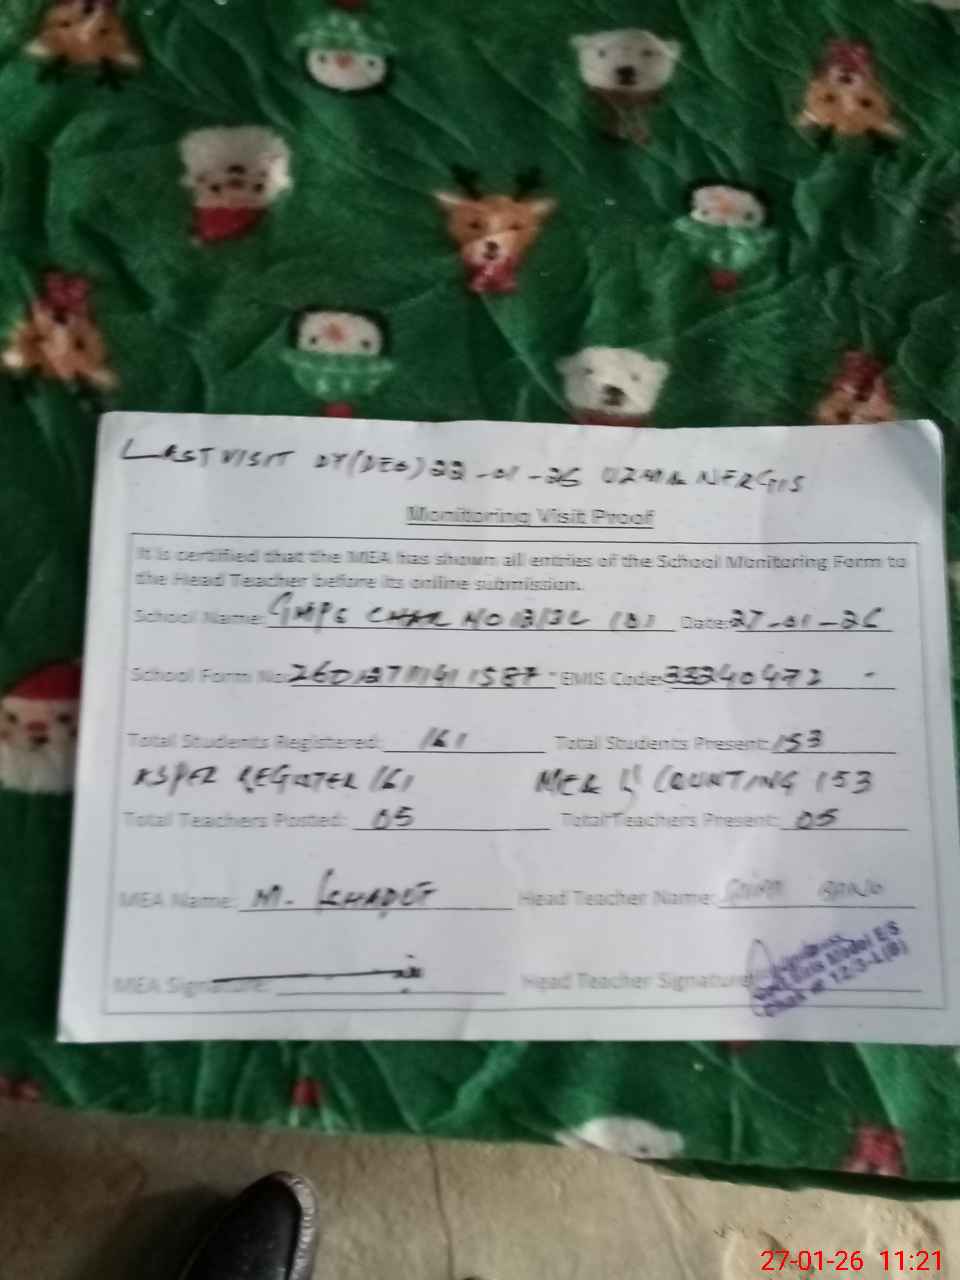 LAST VISIT DY(DEO) 22-01-26 UZMA NERGIS
Monitoring Visit Proof
It is certified that the MEA has shown all entries of the School Monitoring Form to
the Head Teacher before its online submission.
School Name: GMPS CHAK NO 12/3L (B) Date: 27-01-26
School Form No: EMIS Code: 33240472
Total Students Registered: 161 Total Students Present: 153
AS PER REGISTER 161 MEA COUNTING 153
Total Teachers Posted: 05 Total Teachers Present: 05
MEA Name: M. Head Teacher Name: BANO
MEA Signature: Head Teacher Signature:
Govt. Girls Model E/S
Chak # 12/3-L(B)
27-01-26 11:21